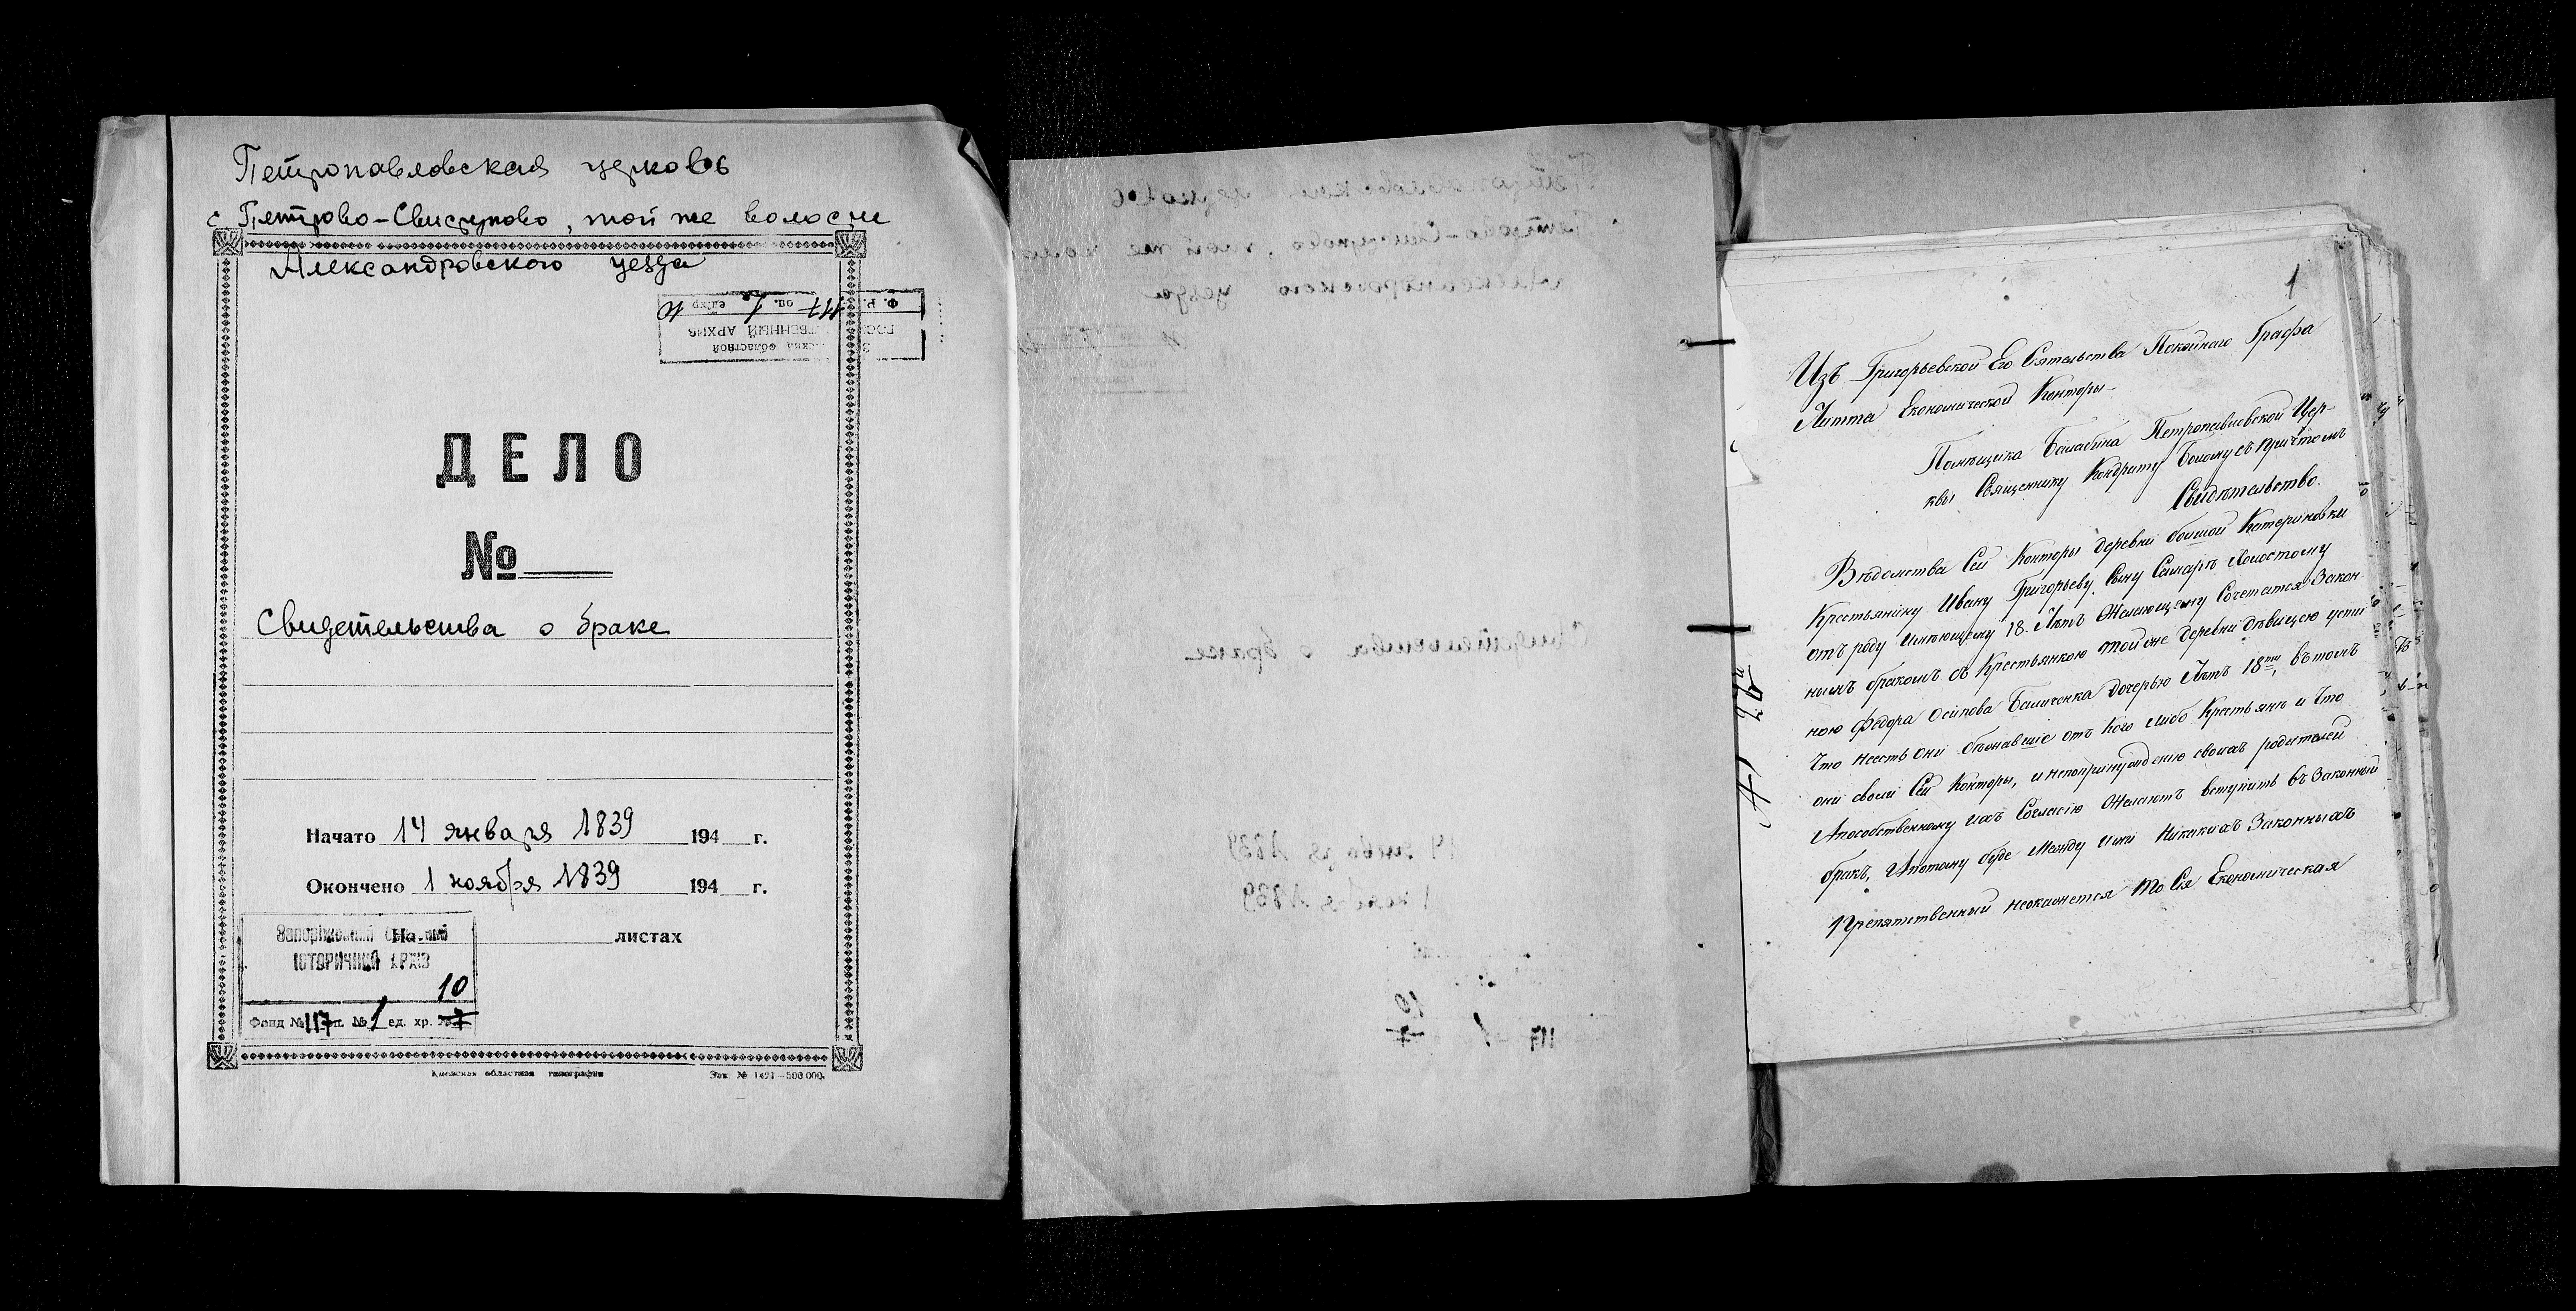 Петропавловская церковь
с Петрово-Свистуново, той же волости
Александровского уезда
Ф. Р. 117 оп. 1 ед.хр 10
ГОСУ ТВЕННЫЙ АРХИВ
З ский областной
ДЕЛО
№
Свидетельства о браке
Начато 14 января 1839 194 г.
Окончено 1 ноября 1839 194 г.
На листах
Запорізький
ІСТОРИЧНИЙ АРХІВ
10
Фонд № 117 оп. № 1 ед. хр. № 7
Киевская областная типография Зак. № 1421—500 000.
1
Изъ Григорьевской Его Сіятельства Покойного Графа
Литта Економической Конторы
Помѣщика Балабина Петропавловской Цер-
квы Священнику Кондрату Бѣлому съ причтомъ
Свидѣтельство.
Вѣдомства Сей Конторы деревни большой Катериновки
Крестьянину Ивану Григорьеву Сыну Самарѣ Холостому
отъ роду имѣющему 18. Лѣтъ Желающему Сочетатся Закон-
нымъ бракомъ съ Крестьянкою той же деревни дѣвицею Усти
ною Федора Осипова дочерью Лѣтъ 18ти, въ томъ
Что несть они бѣжавшіе отъ кого либо Крестьянъ и Что
они свои Сей Конторы, и непопринужденію своихъ родителей
Апособственному ихъ Согласію Желаютъ вступить въ Законный
бракъ, Ипотому буде Между ими Никакихъ Законныхъ
Препятственный неокажется То Ся Економическая